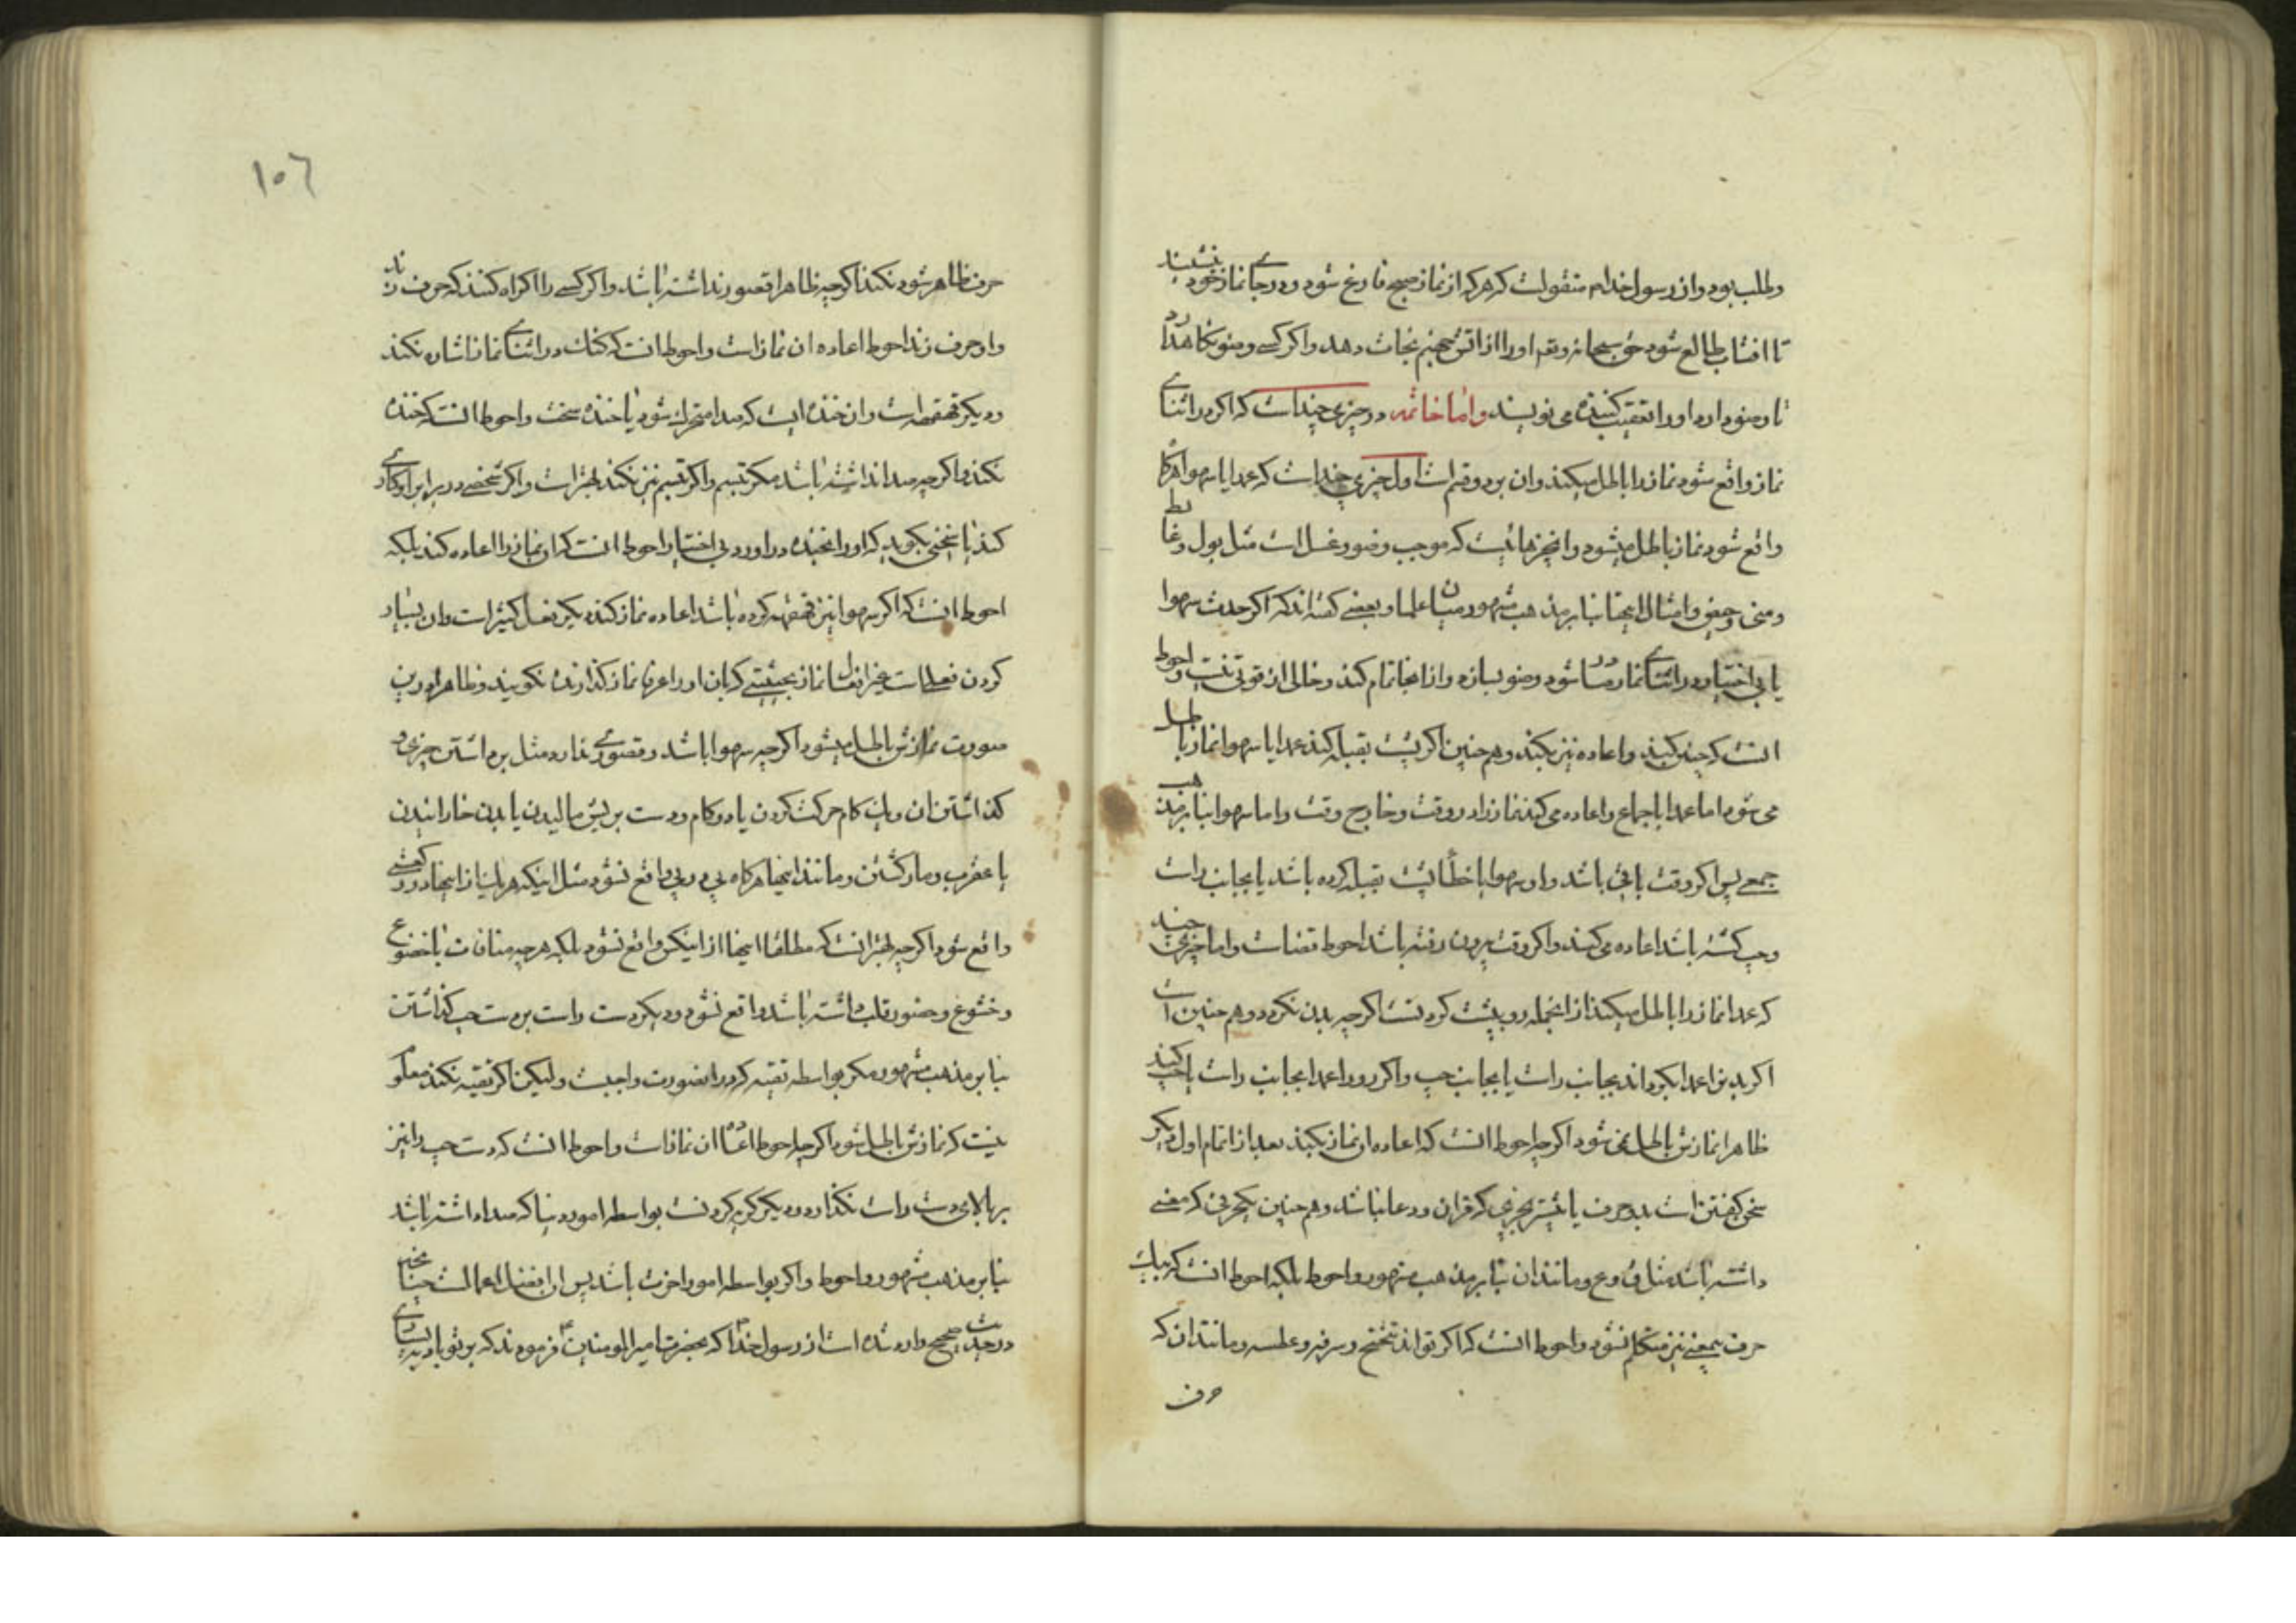 وطلب بود و از رسول خدا م منقولست که هر که از نماز صبح فارغ شود و در جای نماز خود بنشیند
تا افتاب طالع شود حق سبحانه وتعم او را از اتش جهنم نجات دهد و اگر کسی وضو نگاهدارد
تا وضو دارد او را تعقیب کننده می نویسند واما خاتمه در چیزی چند است که اگر در اثنای
نماز واقع شود نماز را باطل میکند وان بر دو قسم است اول چیزی چند است که عمدا یا سهوا هرگاه
واقع شود نماز باطل میشود وانچیزهائیست که موجب وضو و غسل است مثل بول وغایط
ومنی وحیض وامثال اینها بنا بر مذهب مشهور میان علما وبعضی گفته اند که اگر حدث سهوا
یا بی اختیار در اثنای نماز صادر شود وضو بسازد وازانجا تمام کند وخالی از قوتی نیست واحوط
انست که چنین کند واعاده نیز بکند وهم چنین اگر پشت بقبله کند عمدا یا سهوا نماز باطل
می شود اما عمدا باجماع واعاده می کند نماز را در وقت وخارج وقت واما سهوا بنا بر مذهب
جمعی پس اگر وقت باقی باشد واو سهوا یا خطأ پشت بقبله کرده باشد یا بجانب راست
وچپ گشته باشد اعاده می کند واگر وقت بیرون رفته باشد احوط قضاست واما چیزی چند
که عمدا نماز را باطل میکند از انجمله رو به پشت کردنست اگرچه بدن نگردد وهم چنین است
اگر بدن را عمدا بگرداند بجانب راست یا بجانب چپ واگر رو را عمدا بجانب راست یا چپ کند
ظاهرا نمازش باطل نمی شود اگرچه احوط انست که اعاده ان نماز بکند بعد از اتمام اول دیگر
سخن گفتن است بدو حرف یا بیشتر بچیزی که قران ودعا نباشد وهم چنین بیکحرفی که معنی
داشته باشد مثل ق وع ومانند ان بنا بر مذهب مشهور واحوط بلکه احوط انست که بیک
حرف بیمعنی نیز متکلم نشود واحوط انست که اگر تواند تنحنح وسرفه وعطسه ومانند ان که
حرف
١٠٦
حرف ظاهر شود نکند اگرچه ظاهرا قصور نداشته باشد واگر کسی را اکراه کنند که حرف زند
واو حرف زند احوط اعاده ان نماز است واحوط انست که گنک در اثنای نماز اشاره نکند
ودیگر قهقهه است وان خنده ایست که صدا متحرک شود یا خنده سخت واحوط انست که خنده
نکند واگرچه صدا نداشته باشد مگر تبسم واگر تبسم نیز نکند بهتر است واگر شخصی در برابر او کاری
کند یا سخنی بگوید که او را بخنده دراورد بی اختیار احوط انست که او نماز را اعاده کند بلکه
احوط انست که اگر سهوا نیز قهقهه کرده باشد اعاده نماز کند دیگر فعل کثیر است وان بسیار
کردن فعلیست غیر افعال نماز بحیثیتی که بان او را عرفا نماز گذارنده نگویند وظاهرا درین
صورت نمازش باطل میشود اگرچه سهوا باشد وقصوری ندارد مثل برداشتن چیزی و
گذاشتن ان ویک کام حرکت کردن یا دو کام ودست بر ریش مالیدن یا بدن خارانیدن
یا عقرب ومار کشتن ومانند اینها هرگاه پی در پی واقع نشود مثل اینکه هر یک از اینها در رکعتی
واقع شود اگرچه بهتر انست که مطلقا اینها از اینکس واقع نشود بلکه هرچه منافات با خضوع
وخشوع وحضور قلب داشته باشد واقع نشود ودیگر دست راست بر دست چپ گذاشتن
بنا بر مذهب مشهور مگر بواسطه تقیه که در انصورت واجبست ولیکن اگر تقیه نکند معلوم
نیست که نمازش باطل شود اگرچه احوط اعاده ان نماز است واحوط انست که دست چپ را نیز
بر بالای دست راست نگذارد ودیگر گریه کردنست بواسطه امور دنیا که صدا داشته باشد
بنا بر مذهب مشهور واحوط واگر بواسطه امور اخرت باشد پس ان افضل اعمالست چنانچه
در حدیث صحیح وارد شده است از رسول خدا ص که بحضرت امیر المومنین ع فرمودند که بر تو باد بسیاری